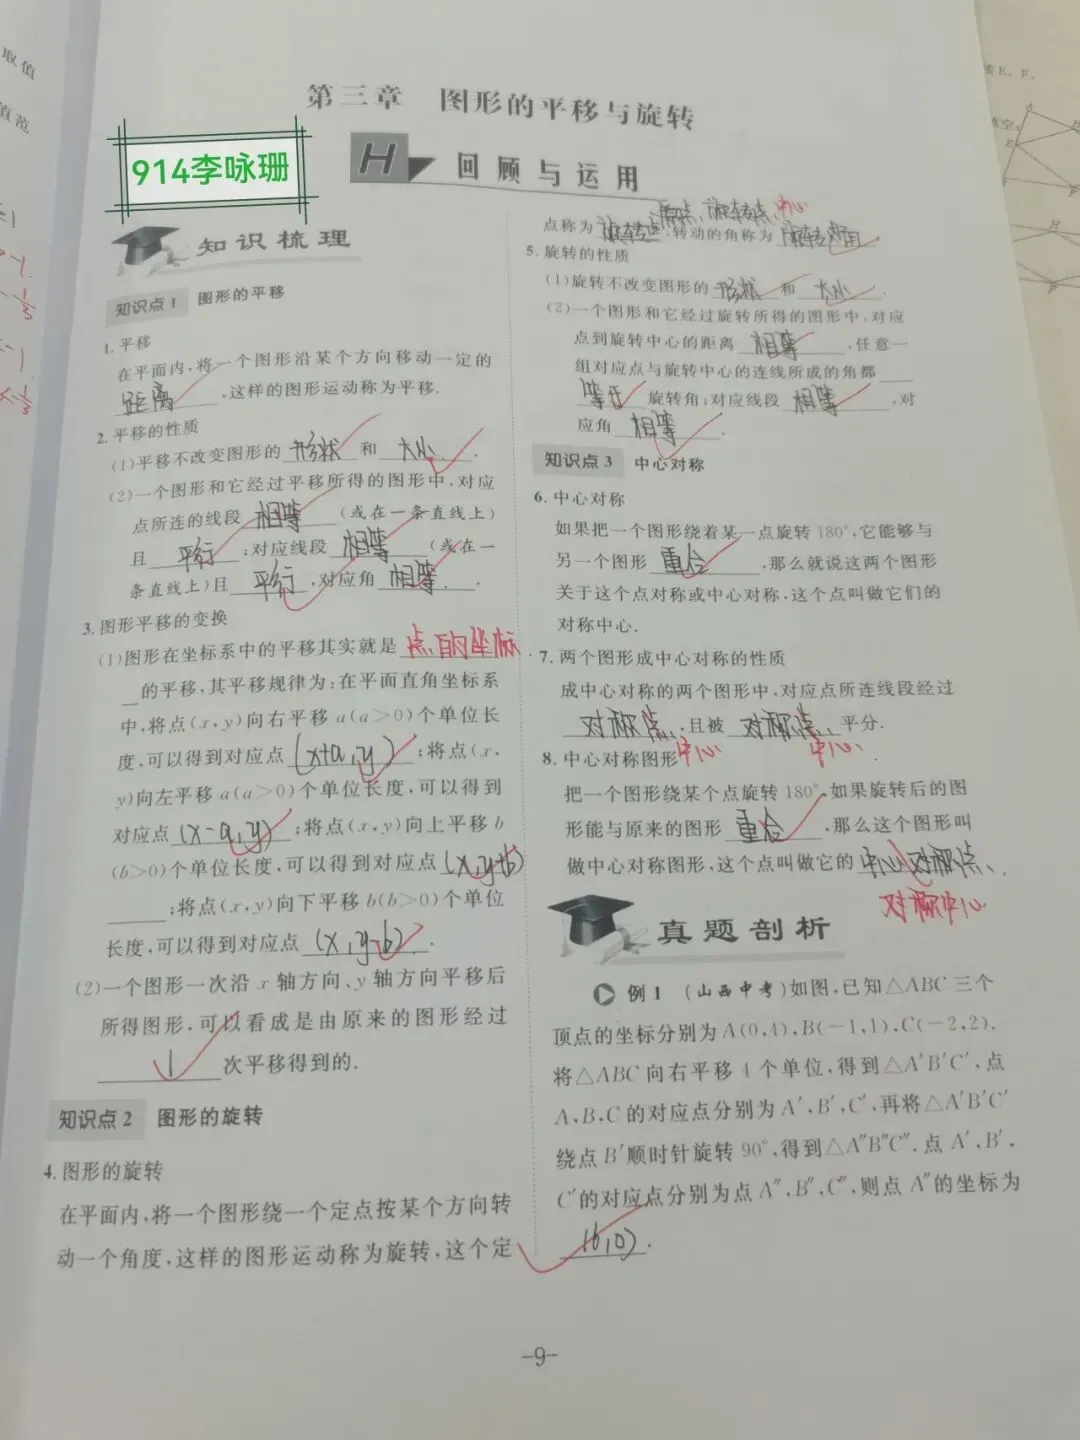 取值
值范
第三章 图形的平移与旋转
914李咏珊
H 回顾与运用
知识梳理
知识点1 图形的平移
1. 平移
在平面内,将一个图形沿某个方向移动一定的
距离,这样的图形运动称为平移.
2. 平移的性质
(1)平移不改变图形的形状和大小.
(2)一个图形和它经过平移所得的图形中,对应
点所连的线段相等(或在一条直线上)
且平行;对应线段相等(或在一
条直线上)且平行,对应角相等.
3. 图形平移的变换
(1)图形在坐标系中的平移其实就是点的坐标
的平移,其平移规律为:在平面直角坐标系
中,将点(x,y)向右平移a(a>0)个单位长
度,可以得到对应点(x+a,y);将点(x,
y)向左平移a(a>0)个单位长度,可以得到
对应点(x-a,y);将点(x,y)向上平移b
(b>0)个单位长度,可以得到对应点(x,y+b)
;将点(x,y)向下平移b(b>0)个单位
长度,可以得到对应点(x,y-b).
(2)一个图形一次沿x轴方向、y轴方向平移后
所得图形,可以看成是由原来的图形经过
1次平移得到的.
知识点2 图形的旋转
4. 图形的旋转
在平面内,将一个图形绕一个定点按某个方向转
动一个角度,这样的图形运动称为旋转,这个定
旋转点 中心
点称为,转动的角称为旋转角.
5. 旋转的性质
(1)旋转不改变图形的形状和大小.
(2)一个图形和它经过旋转所得的图形中,对应
点到旋转中心的距离相等,任意一
组对应点与旋转中心的连线所成的角都
等于旋转角;对应线段相等,对
应角相等.
知识点3 中心对称
6. 中心对称
如果把一个图形绕着某一点旋转180°,它能够与
另一个图形重合,那么就说这两个图形
关于这个点对称或中心对称,这个点叫做它们的
对称中心.
7. 两个图形成中心对称的性质
成中心对称的两个图形中,对应点所连线段经过
对称点,且被对称点平分.
中心 中心
8. 中心对称图形
把一个图形绕某个点旋转180°,如果旋转后的图
形能与原来的图形重合,那么这个图形叫
做中心对称图形,这个点叫做它的中心对称点.
对称中心
真题剖析
例1 (山西中考)如图,已知△ABC三个
顶点的坐标分别为A(0,4),B(-1,1),C(-2,2).
将△ABC向右平移4个单位,得到△A′B′C′,点
A,B,C的对应点分别为A′,B′,C′,再将△A′B′C′
绕点B′顺时针旋转90°,得到△A″B″C″.点A′,B′,
C′的对应点分别为点A″,B″,C″,则点A″的坐标为
(6,0).
-9-